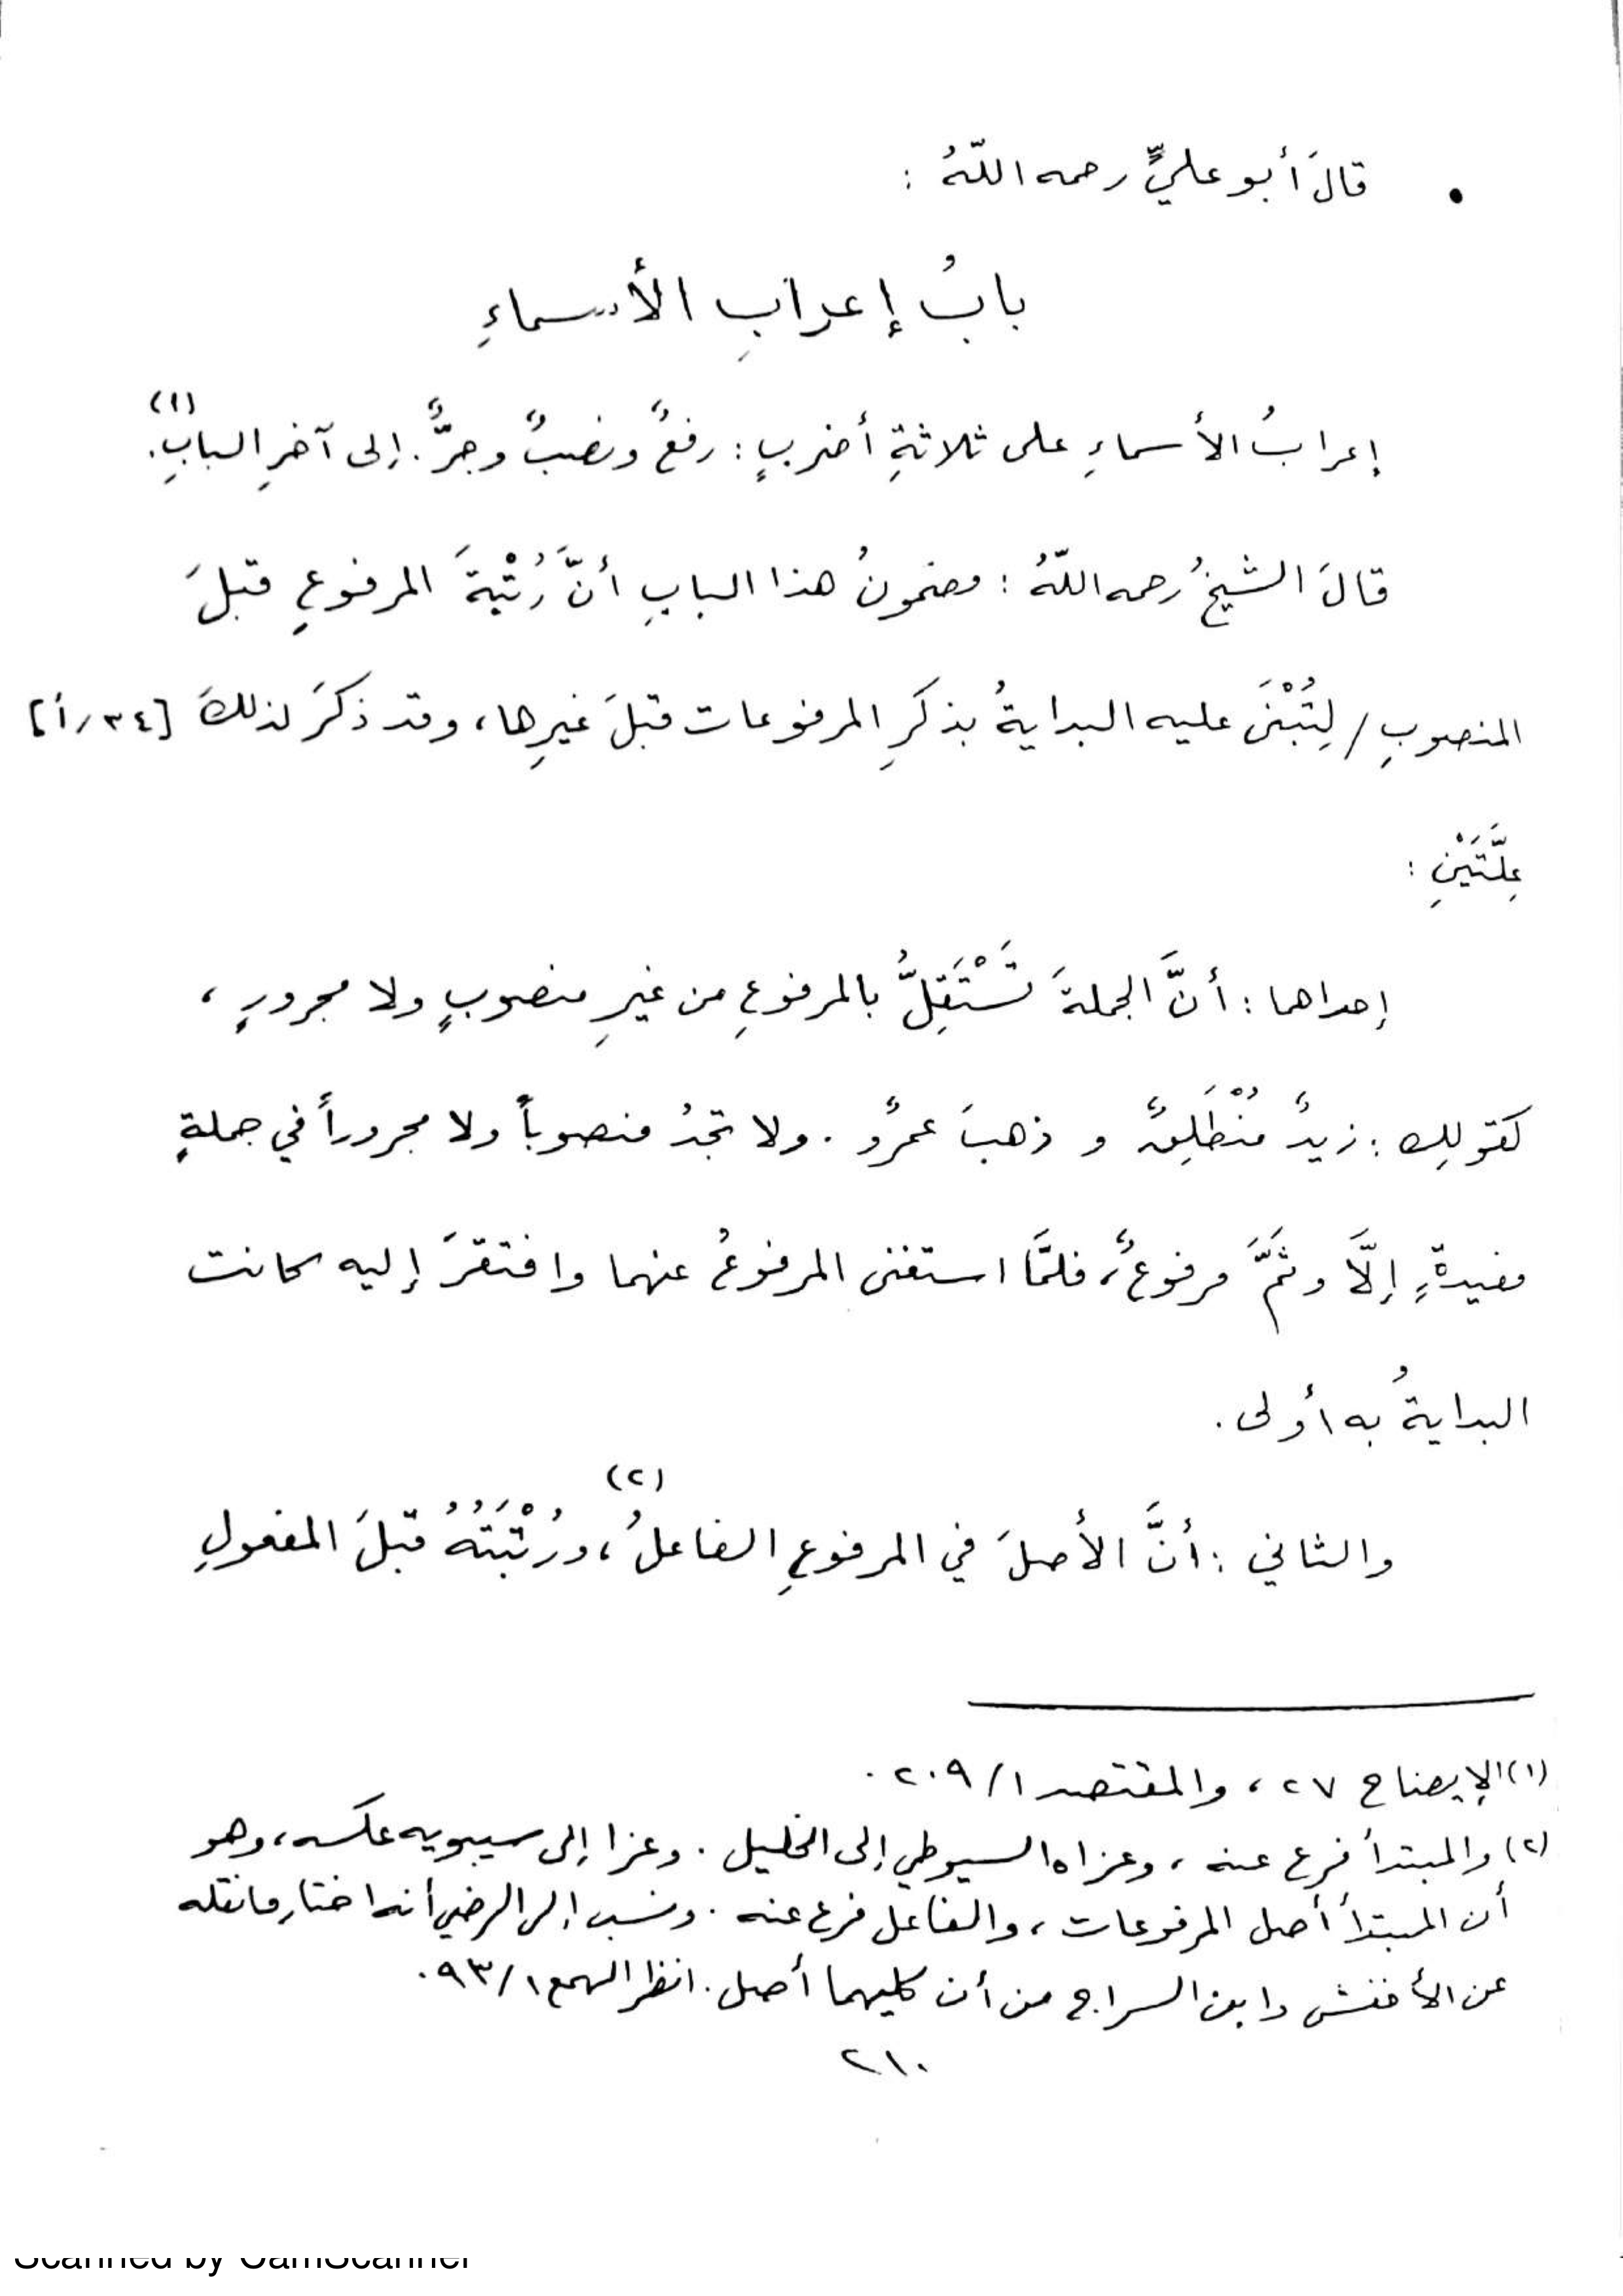 • قالَ أبو عليٍّ رحمه اللّهُ :
بابُ إعرابِ الأسماءِ
إعرابُ الأسماءِ على ثلاثةِ أضربٍ : رفعٌ ونصبٌ وجرٌّ . إلى آخرِ البابِ . (١)
قالَ الشيخُ رحمه اللّهُ : مضمونُ هذا البابِ أنَّ رُتْبَةَ المرفوعِ قبلَ
المنصوبِ / لِتُبْنَى عليه البدايةُ بذكرِ المرفوعات قبلَ غيرِها ، وقد ذكرَ لذلكَ [٣٤/أ]
عِلَّتَيْنِ :
إحداهما : أنَّ الجملةَ تَسْتَقِلُّ بالمرفوعِ من غيرِ منصوبٍ ولا مجرورٍ ،
كقولِك : زيدٌ مُنْطَلِقٌ و ذهبَ عمرٌو . ولا تجدُ منصوباً ولا مجروراً في جملةٍ
مفيدةٍ إلّا وثَمَّ مرفوعٌ ، فلمَّا استغنى المرفوعُ عنهما وافتقرَ إليه كانت
البدايةُ به أولى .
والثاني : أنَّ الأصلَ في المرفوعِ الفاعلُ (٢) ، ورُتْبَتُهُ قبلَ المفعولِ
(١) الإيضاح ٢٧ ، والمقتصد ٢٠٩/١ .
(٢) والمبتدأ فرع عنه ، وعزاه السيوطي إلى الخليل . وعزا إلى سيبويه عكسه ، وهو
أن المبتدأ أصل المرفوعات ، والفاعل فرع عنه . ونسب إلى الرضي أنه اختار ما نقله
عن الأخفش وابن السراج من أن كليهما أصل . انظر الهمع ٩٣/١ .
٢١٠
Scanned by CamScanner